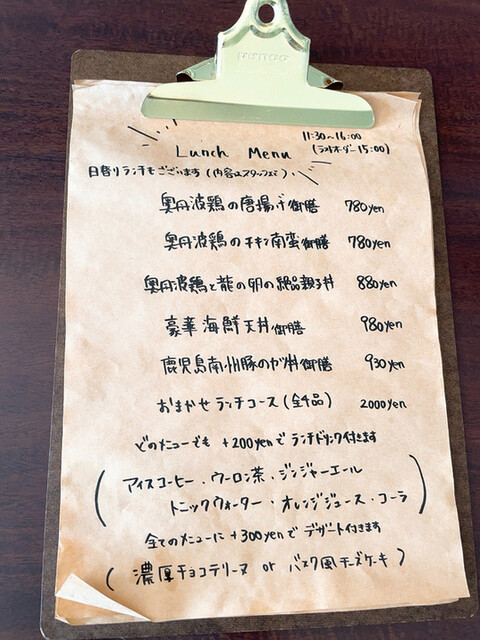 11:30~16:00
Lunch Menu
(ラストオーダー15:00)
日替りランチもございます(内容はスタッフまで)
奥丹波鶏の唐揚げ御膳 780yen
奥丹波鶏のチキン南蛮御膳 780yen
奥丹波鶏と龍の卵の絶品親子丼 880yen
豪華海鮮天丼御膳 980yen
鹿児島南州豚のカツ丼御膳 930yen
おまかせランチコース(全4品) 2000yen
どのメニューでも +200yenで ランチドリンク付きます
(アイスコーヒー・ウーロン茶・ジンジャーエール
トニックウォーター・オレンジジュース・コーラ)
全てのメニューに+300yenで デザート付きます
(濃厚チョコテリーヌ or バスク風チーズケーキ)